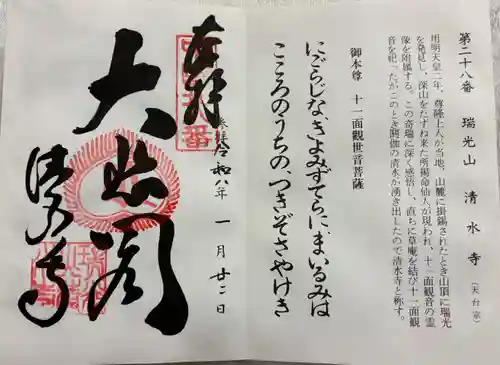 第二十八番　瑞光山　清水寺（天台宗）
用明天皇二年、尊隆上人が当地、山麓に掛錫されたとき山頂に瑞光
を発見し、深山をたずね来た所揚命仙人が現われ、十一面観音の霊
像を附属する。この奇瑞に深く感悟し、直ちに草庵を結び十一面観
音を祀ったがこのとき閼伽の清水が湧き出したので清水寺と称す。
御本尊　十一面観世音菩薩
にごらじなきよみずてらに、まいるみは
こころのうちの、つきぞさやけき
奉拝
参拝 令和八年　一月廿二日
大悲閣
清水寺